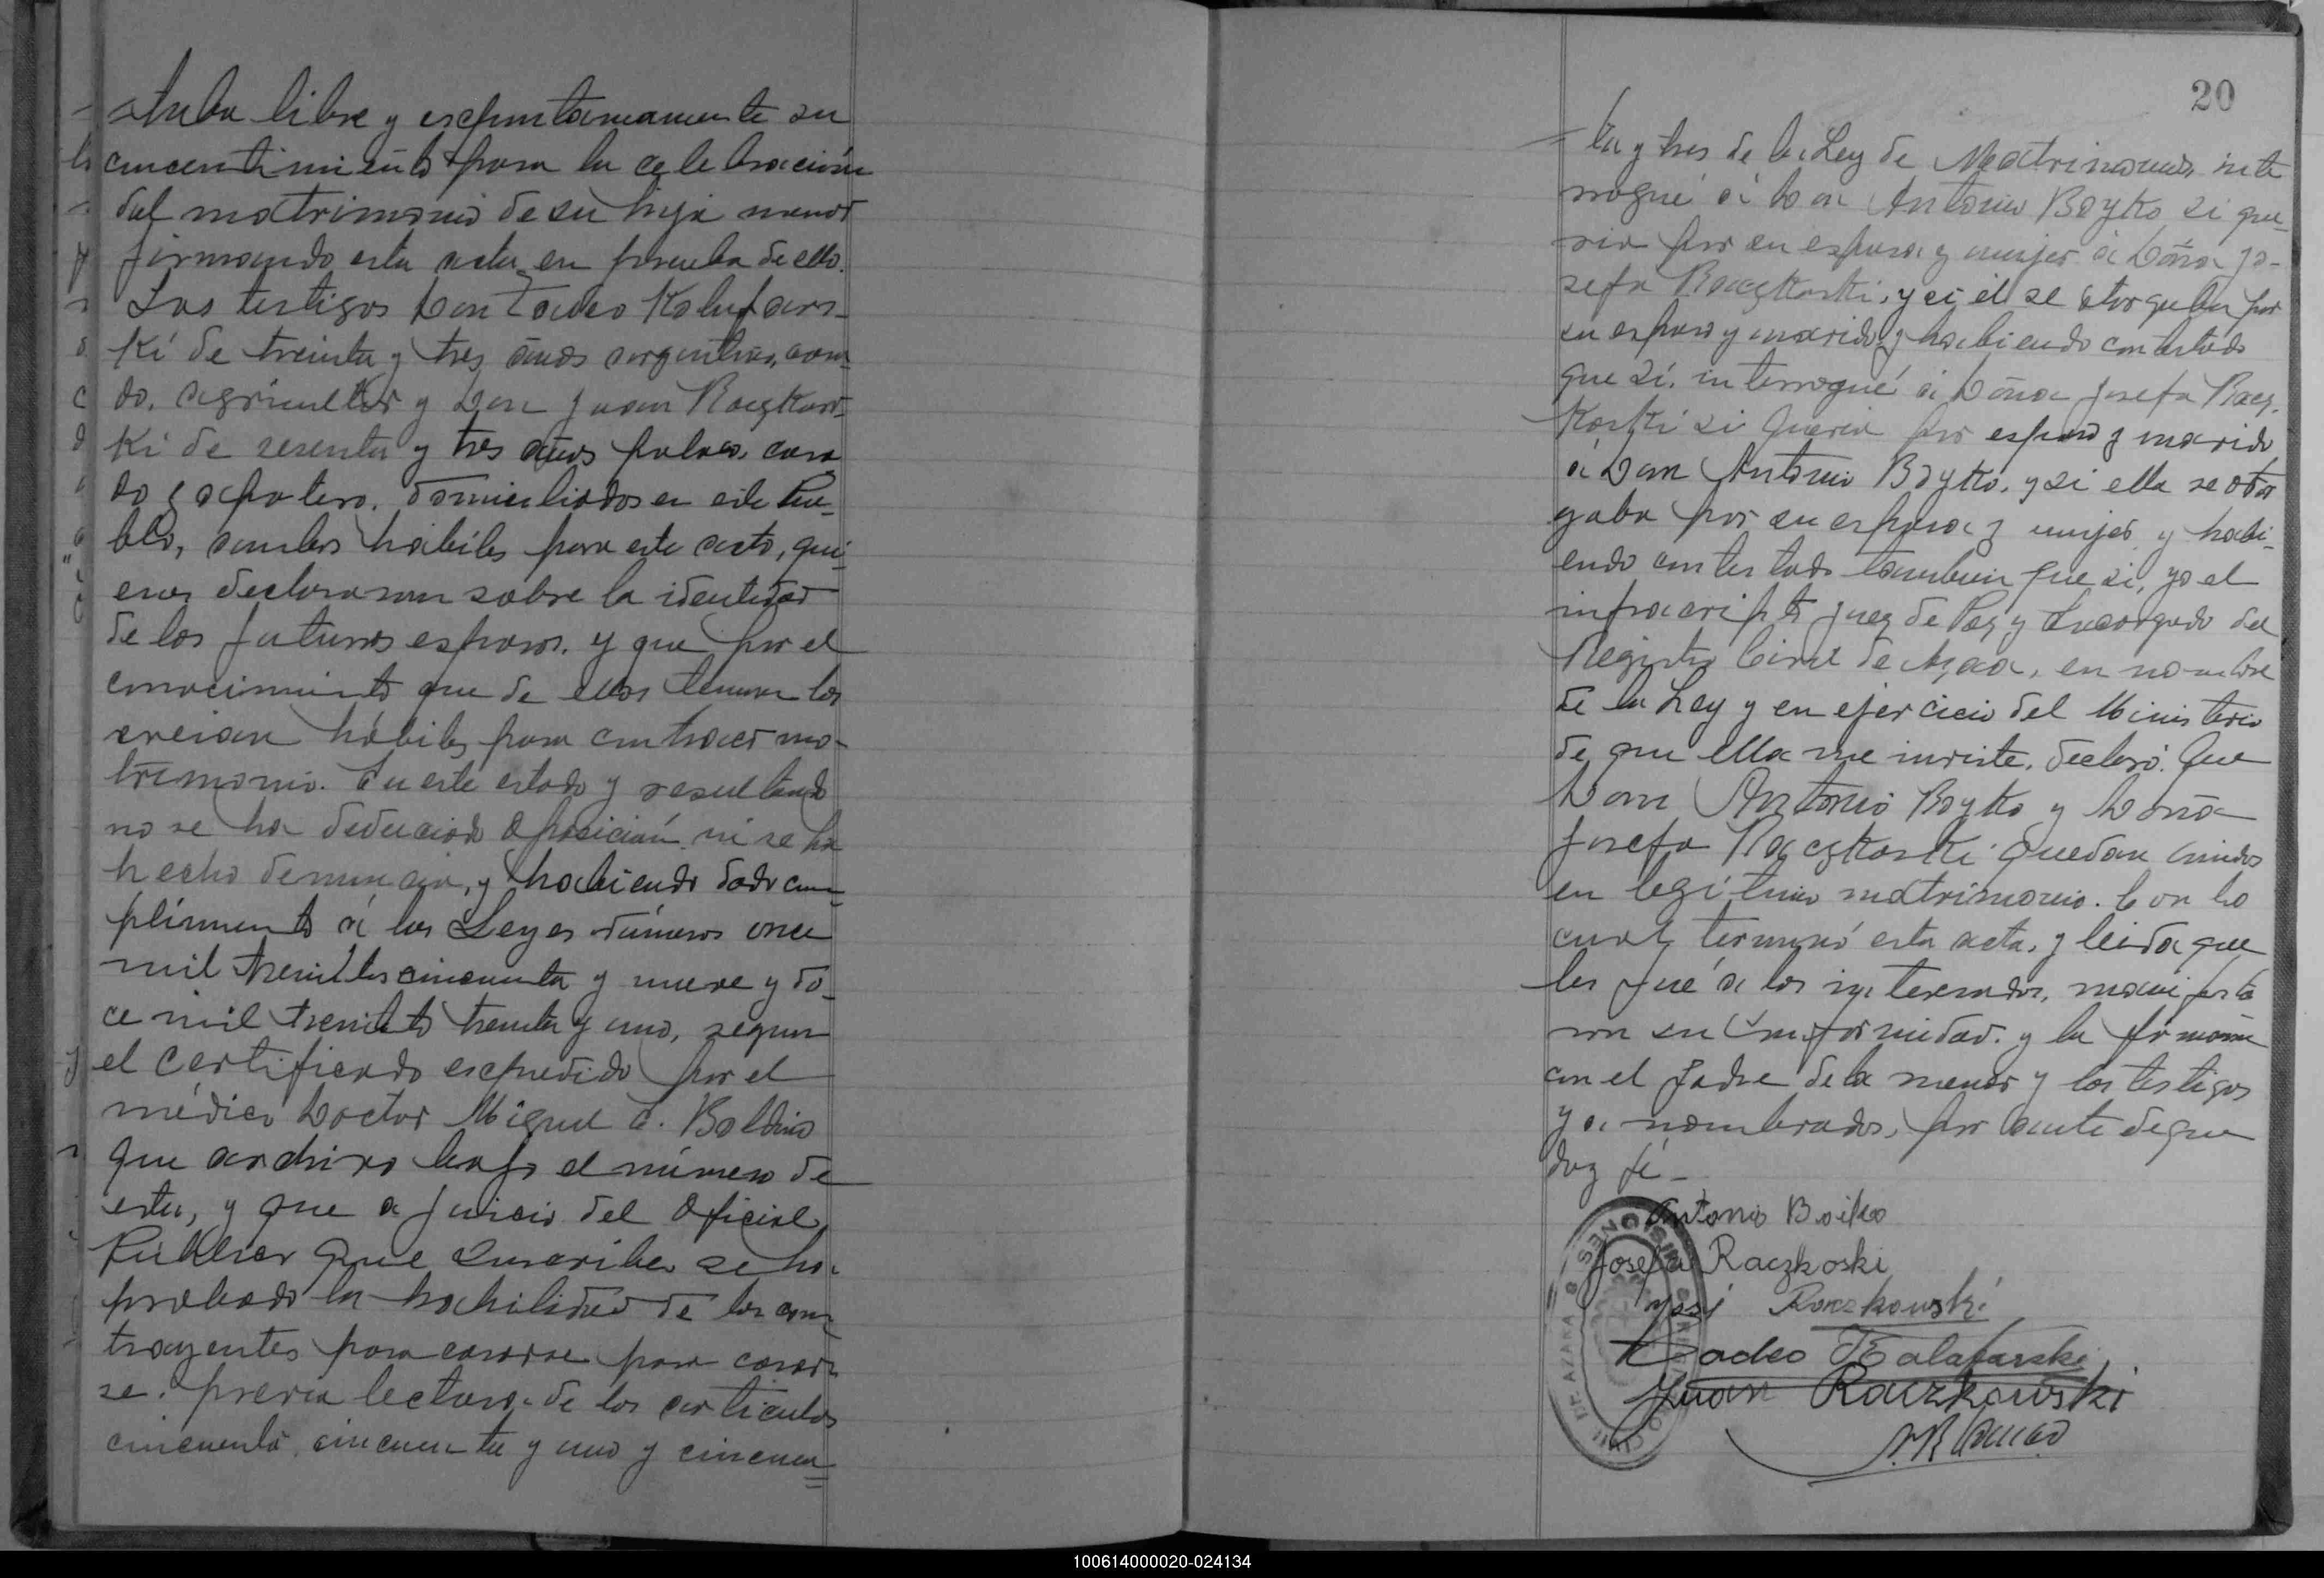 staba libre y espontaneamente su
concentimiento para la celebración
del matrimonio de su hija menor
firmando esta acta en prueba de ello.
Los testigos Don Tadeo Kalufars-
ki de treinta y tres años argentino, casa-
do, agricultor y Don Juan Raczkows-
ki de sesenta y tres años polaco, casa
do zapatero, domiciliados en este Pue-
blo, ambos hábiles para este acto, qui-
enes declararon sobre la identidad
de los futuros esposos, y que por el
conocimiento que de ellos tenian los
creian hábiles para contraer ma-
trimonio. En este estado y resultando
no se ha deducido oposición ni se ha
hecho denuncia, y habiendo dado cum-
plimiento á las Leyes números once
mil trecientos cincuenta y nueve y do-
ce mil trecientos treinta y uno, segun
el certificado espedido por el
médico Doctor Miguel A. Boldino
que archivo bajo el número de
esta, y que a juicio del Oficial
Publico que suscribe se ha
probado la habilidad de los con-
trayentes para casarse para casar-
se. previa lectura de los articulos
cincuenta, cincuenta y uno y cincuen-
20
ta y tres de la Ley de Matrimonio, inte
rrogué á Don Antonio Boyko si que-
ria por su esposa y mujer á Doña Jo-
sefa Raczkoski, y si él se otorgaba por
su esposo y marido y habiendo contestado
que sí, interrogué á Doña Josefa Racz-
koski si queria por esposo y marido
á Don Antonio Boyko, y si ella se otor
gaba por su esposa y mujer y habi-
endo contestado tambien que si, yo el
infrascripto Juez de Paz y Encargado del
Registro Civil de Azara, en nombre
de la Ley y en ejercicio del Ministerio
de que ella me inviste, declaró: Que
Don Antonio Boyko y Doña
Josefa Raczkoski quedan unidos
en legítimo matrimonio. Con lo
cual terminó esta acta, y leida que
les fué a los interesados, manifesta
ron su conformidad, y la firmaron
con el padre de la menor y los testigos
ya nombrados, por ante de que
doy fé-
Antonio Boiko
Josefa Raczkoski
José Raczkowski
Tadeo Kalafarski
Juan Raczkowski
100614000020-024134